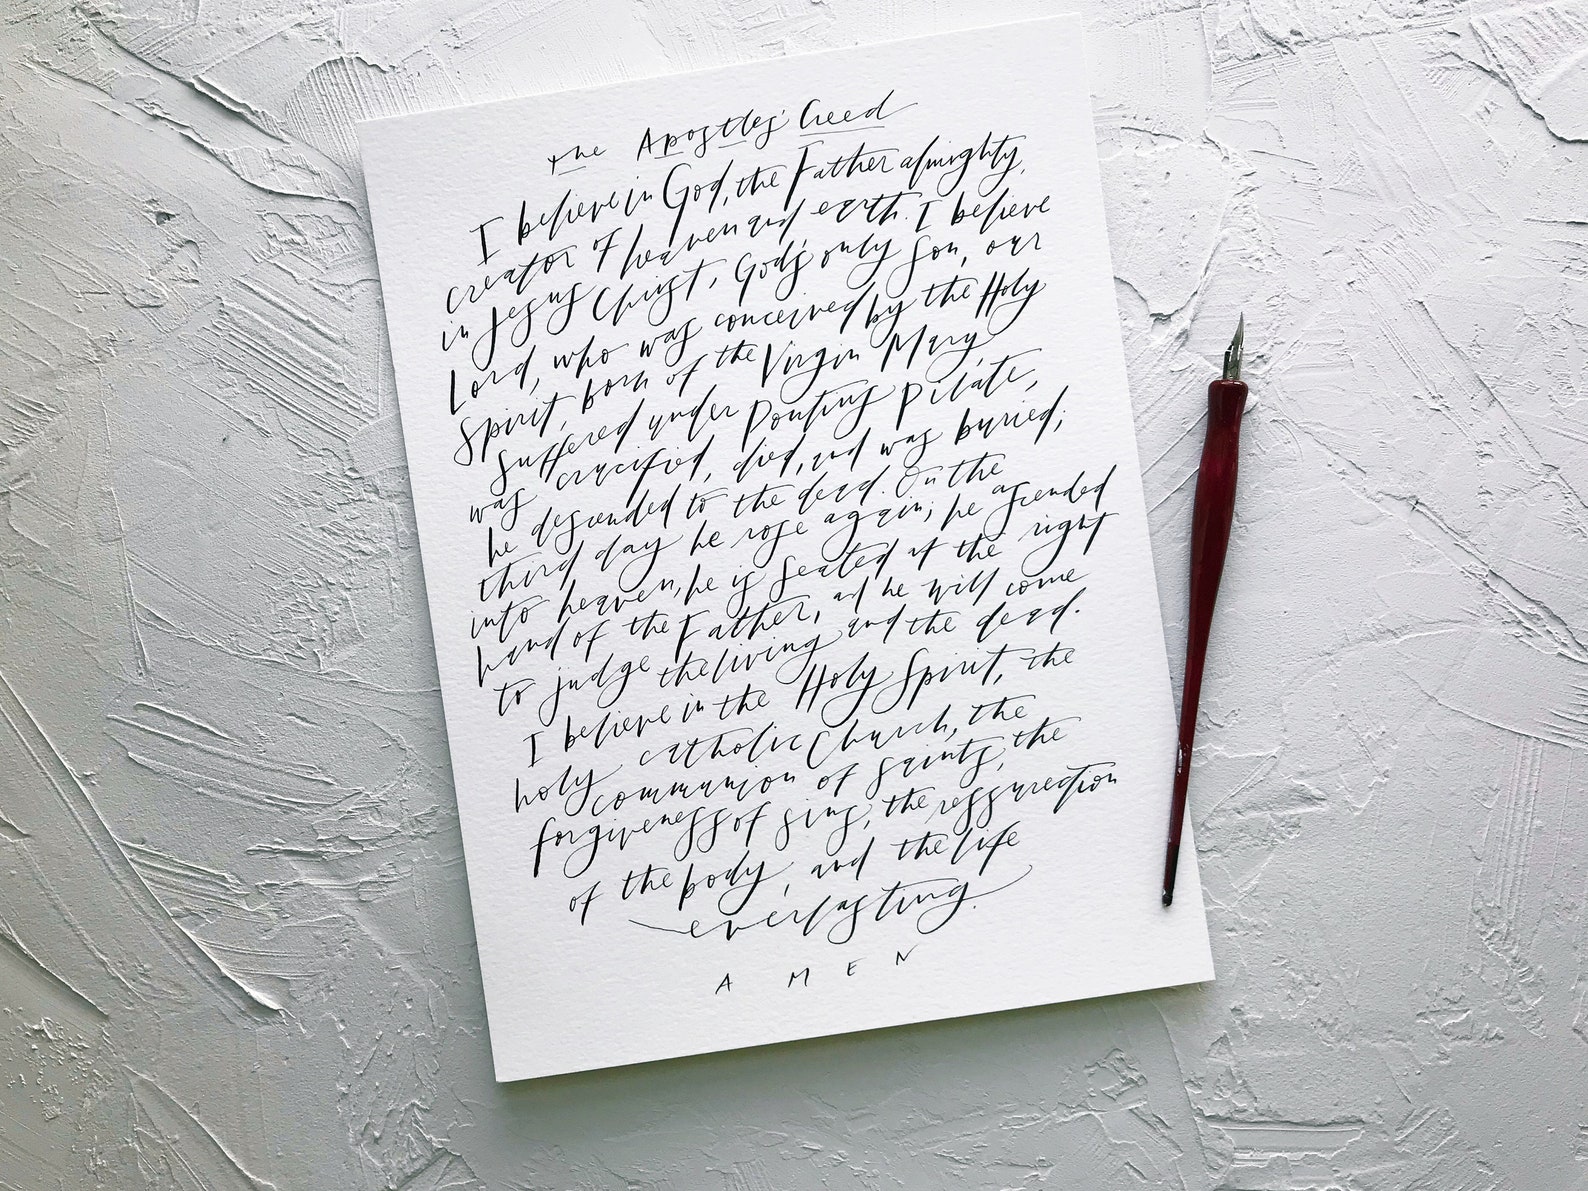 the Apostles' Creed
I believe in God, the Father almighty,
creator of heaven and earth. I believe
in Jesus Christ, God's only Son, our
Lord, who was conceived by the Holy
Spirit, born of the Virgin Mary,
suffered under Pontius Pilate,
was crucified, died, and was buried;
he descended to the dead. On the
third day he rose again; he ascended
into heaven, he is seated at the right
hand of the Father, and he will come
to judge the living and the dead.
I believe in the Holy Spirit, the
holy catholic Church, the
communion of saints, the
forgiveness of sins, the ressurection
of the body, and the life
everlasting.
AMEN